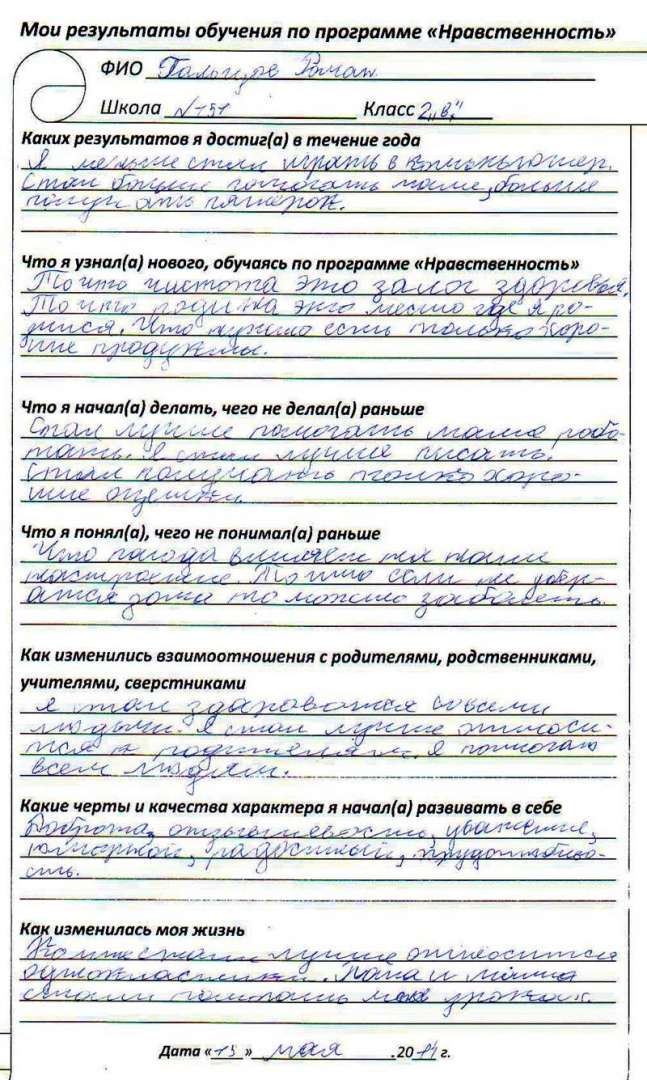 Мои результаты обучения по программе «Нравственность»
ФИО Роман
Школа №151 Класс 2 „в"
Каких результатов я достиг(а) в течение года
Я меньше стал играть в компьютер.
Стал больше помогать маме, больше
получать пятёрок.
Что я узнал(а) нового, обучаясь по программе «Нравственность»
То что чистота это залог здоровья,
То что родина это место где я ро-
дился. Что нужно есть только хоро-
шие продукты.
Что я начал(а) делать, чего не делал(а) раньше
Стал лучше помогать маме рабо-
тать. Я стал лучше писать.
Стал получать только хоро-
шие оценки.
Что я понял(а), чего не понимал(а) раньше
Что погода влияет на наше
настроение. То что если не убер-
ается дома то можно заболеть.
Как изменились взаимоотношения с родителями, родственниками,
учителями, сверстниками
Я стал здароватся совсеми
людьми. Я стал лучше относи-
тся к родителям. Я помогаю
всем людям.
Какие черты и качества характера я начал(а) развивать в себе
Доброта, отзывчивость, уважение,
радостный, трудолюбиво-
сть.
Как изменилась моя жизнь
Ко мне стали лучше относится
однокласники. Папа и мама
стали помогать мне
Дата «15» мая .2014 г.